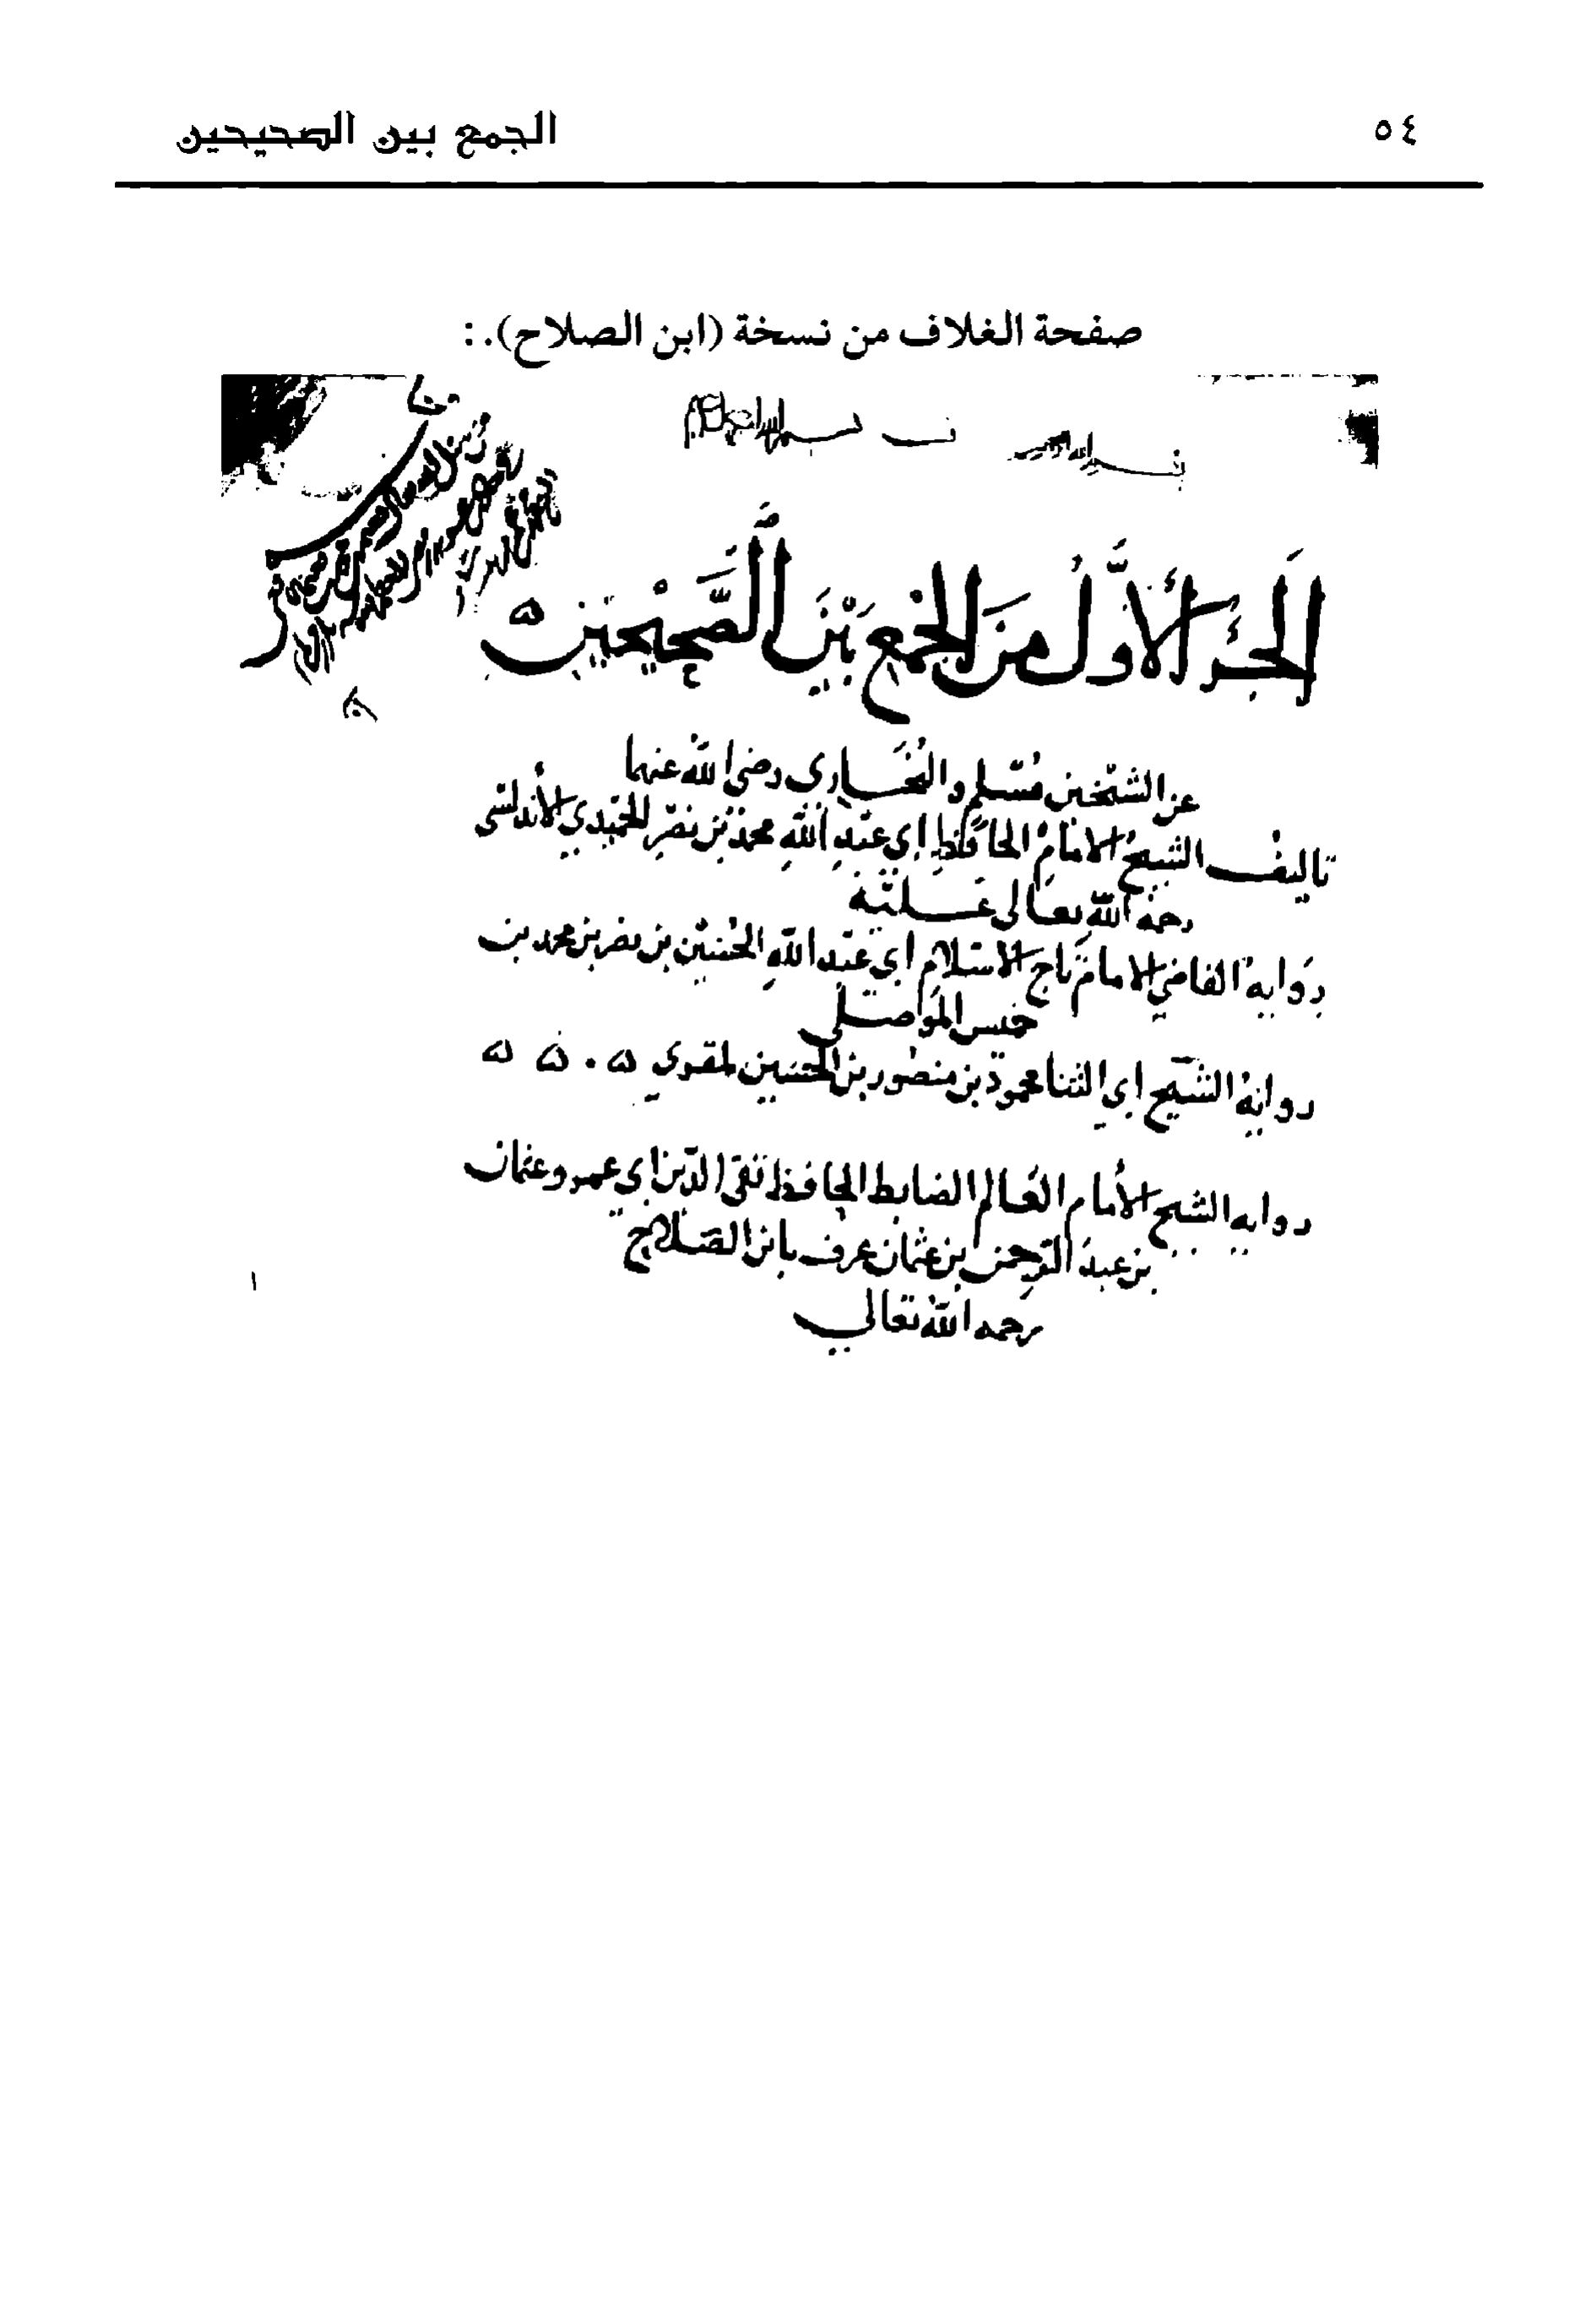 ٥٤
الجمع بين الصحيحين
صفحة الغلاف من نسخة (ابن الصلاح). :
الجزء الأول من الجمع بين الصحيحين ه
عن الشيخين مسلم والبخارى رضى الله عنهما
تاليف الشيخ الامام الحافظ ابي عبد الله محمد بن نصر الحميدي الأندلسى
رحمة الله تعالى عليه
رواية القاضي الامام تاج الاسلام ابي عبد الله الحسين بن نصر بن محمد بن
خميس الموصلي
رواية الشيخ ابي الثنا محمود بن منصور بن الحسين المقري ه . ه ه
رواية الشيخ الأمام العالم الضابط الحافظ تقي الدين ابي عمرو عثمان
بن عبد الرحمن بن عثمان عرف بابن الصلاح
رحمه الله تعالي